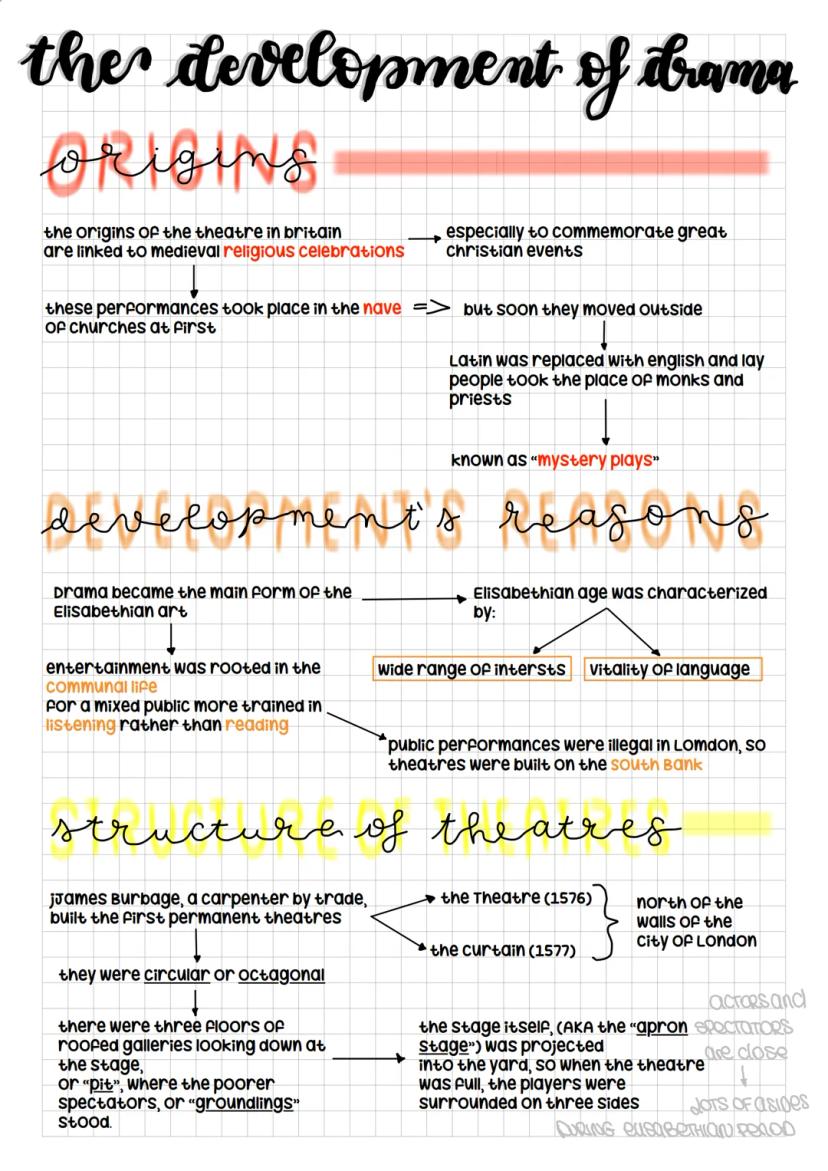 the development of drama
ORIGINS
origins
the origins of the theatre in britain
are linked to medieval religious celebrations
especially to commemorate great
christian events
these performances took place in the nave
of churches at first
=> but soon they moved outside
Latin was replaced with english and lay
people took the place of monks and
priests
known as “mystery plays”
DEVELOPMENT'S REASONS
development's reasons
Drama became the main form of the
Elisabethian art
Elisabethian age was characterized
by:
wide range of intersts
vitality of language
entertainment was rooted in the
communal life
for a mixed public more trained in
listening rather than reading
public performances were illegal in Lomdon, so
theatres were built on the South Bank
STRUCTURE OF THEATRES
structure of theatres
jJames Burbage, a carpenter by trade,
built the first permanent theatres
the Theatre (1576)
the Curtain (1577)
north of the
walls of the
City of London
they were circular or octagonal
there were three floors of
roofed galleries looking down at
the stage,
or “pit”, where the poorer
spectators, or “groundlings”
stood.
the stage itself, (AKA the “apron
stage”) was projected
into the yard, so when the theatre
was full, the players were
surrounded on three sides
actors and
spectators
are close
lots of asides
during elisabethian period